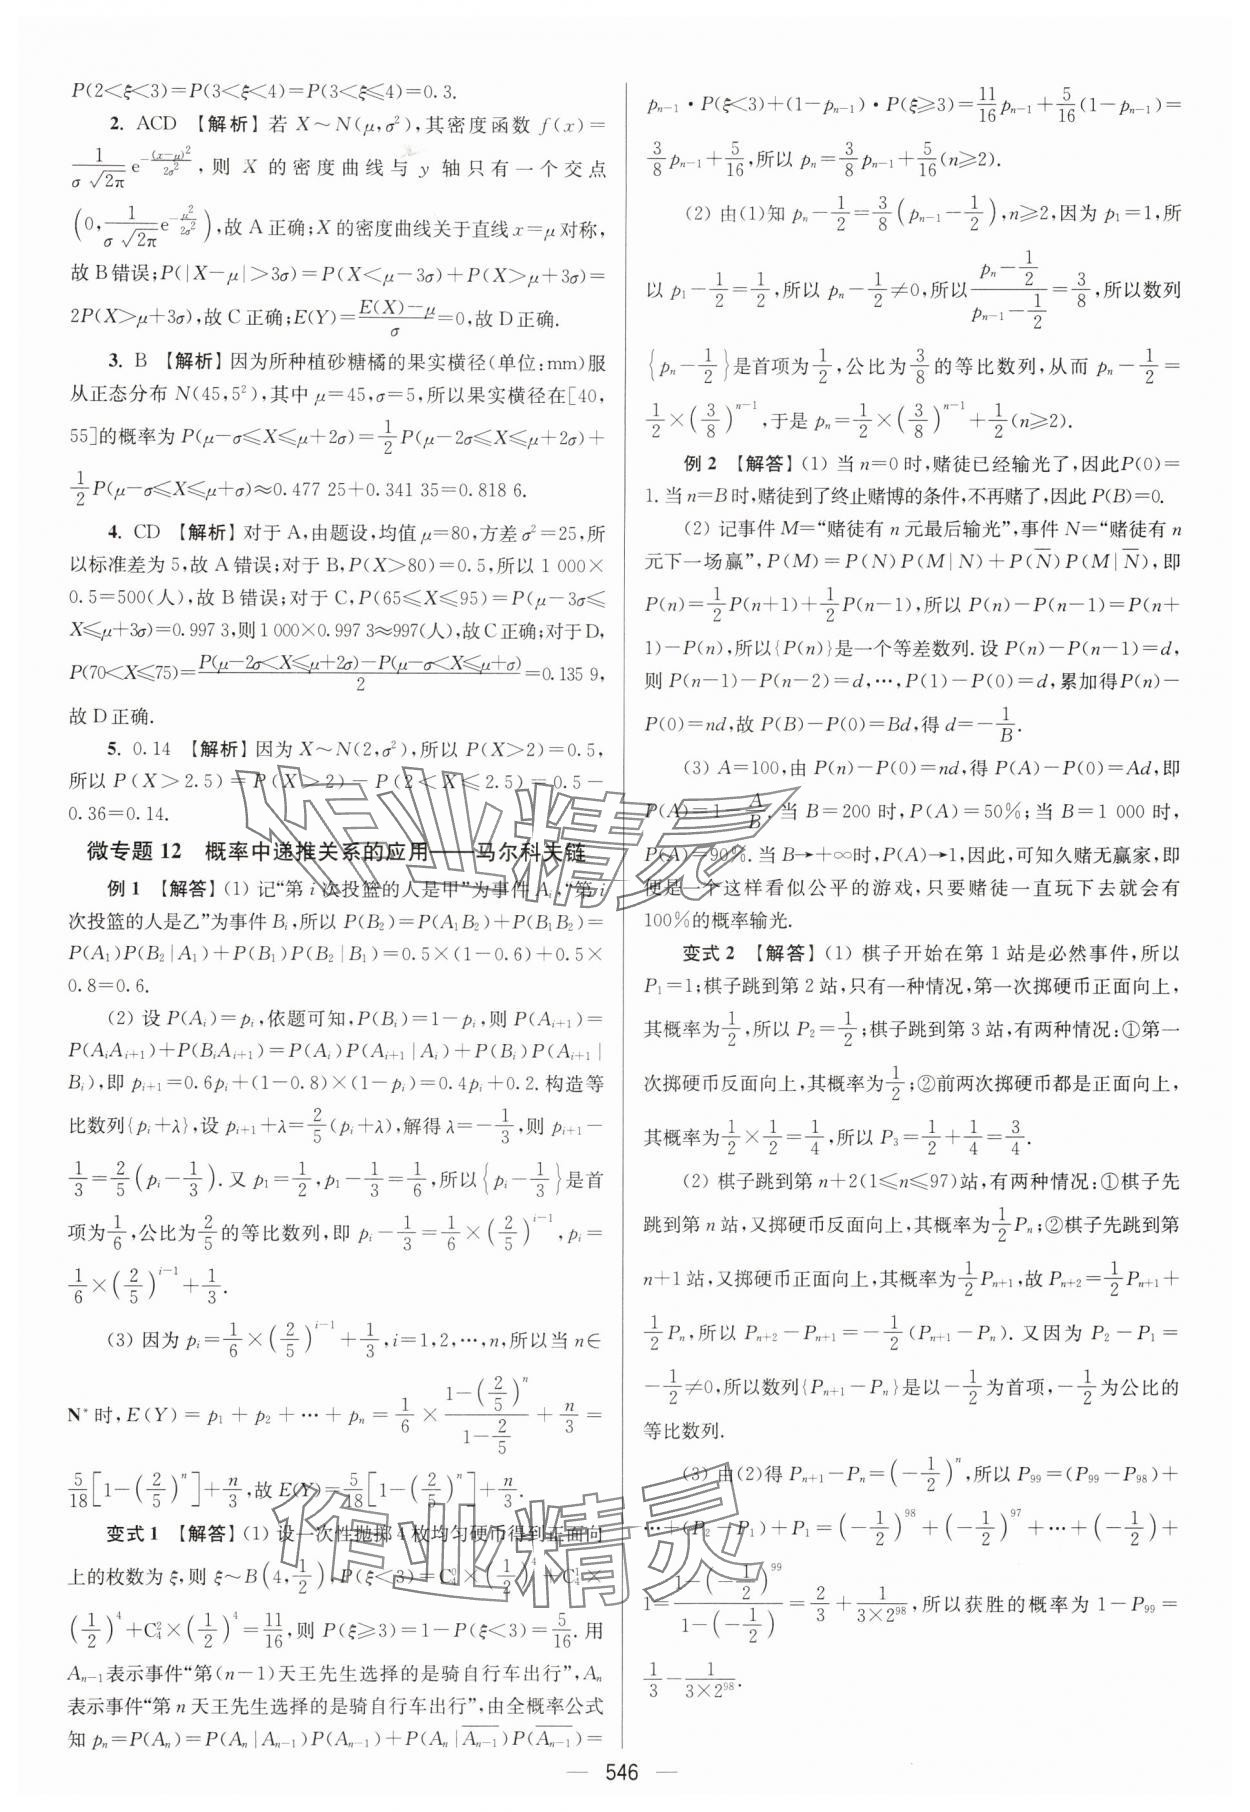 P(2<ξ<3)=P(3<ξ<4)=P(3<ξ≤4)=0.3.
2. ACD 【解析】若 X～N(μ,σ²),其密度函数 f(x)=
\frac{1}{σ\sqrt{2π}}e^{-\frac{(x-μ)^2}{2σ^2}},则 X 的密度曲线与 y 轴只有一个交点
(0,\frac{1}{σ\sqrt{2π}}e^{-\frac{μ^2}{2σ^2}}),故 A 正确;X 的密度曲线关于直线 x=μ 对称,
故 B 错误;P(|X-μ|>3σ)=P(X<μ-3σ)+P(X>μ+3σ)=
2P(X>μ+3σ),故 C 正确;E(Y)=\frac{E(X)-μ}{σ}=0,故 D 正确.
3. B 【解析】因为所种植砂糖橘的果实横径(单位:mm)服
从正态分布 N(45,5²),其中 μ=45,σ=5,所以果实横径在[40,
55]的概率为 P(μ-σ≤X≤μ+2σ)=\frac{1}{2}P(μ-2σ≤X≤μ+2σ)+
\frac{1}{2}P(μ-σ≤X≤μ+σ)≈0.477 25+0.341 35=0.818 6.
4. CD 【解析】对于 A,由题设,均值 μ=80,方差 σ²=25,所
以标准差为 5,故 A 错误;对于 B,P(X>80)=0.5,所以 1 000×
0.5=500(人),故 B 错误;对于 C,P(65≤X≤95)=P(μ-3σ≤
X≤μ+3σ)=0.997 3,则 1 000×0.997 3≈997(人),故 C 正确;对于 D,
P(70<X≤75)=\frac{P(μ-2σ<X≤μ+2σ)-P(μ-σ<X≤μ+σ)}{2}=0.135 9,
故 D 正确.
5. 0.14 【解析】因为 X～N(2,σ²),所以 P(X>2)=0.5,
所以 P(X>2.5)=P(X>2)-P(2<X≤2.5)=0.5-
0.36=0.14.
微专题 12 概率中递推关系的应用——马尔科夫链
例 1 【解答】(1) 记“第 i 次投篮的人是甲”为事件 A_i,“第 i
次投篮的人是乙”为事件 B_i,所以 P(B_2)=P(A_1B_2)+P(B_1B_2)=
P(A_1)P(B_2|A_1)+P(B_1)P(B_2|B_1)=0.5×(1-0.6)+0.5×
0.8=0.6.
(2) 设 P(A_i)=p_i,依题可知,P(B_i)=1-p_i,则 P(A_{i+1})=
P(A_iA_{i+1})+P(B_iA_{i+1})=P(A_i)P(A_{i+1}|A_i)+P(B_i)P(A_{i+1}|
B_i),即 p_{i+1}=0.6p_i+(1-0.8)×(1-p_i)=0.4p_i+0.2.构造等
比数列{p_i+λ},设 p_{i+1}+λ=\frac{2}{5}(p_i+λ),解得 λ=-\frac{1}{3},则 p_{i+1}-
\frac{1}{3}=\frac{2}{5}(p_i-\frac{1}{3}).又 p_1=\frac{1}{2},p_1-\frac{1}{3}=\frac{1}{6},所以{p_i-\frac{1}{3}}是首
项为\frac{1}{6},公比为\frac{2}{5}的等比数列,即 p_i-\frac{1}{3}=\frac{1}{6}×(\frac{2}{5})^{i-1},p_i=
\frac{1}{6}×(\frac{2}{5})^{i-1}+\frac{1}{3}.
(3) 因为 p_i=\frac{1}{6}×(\frac{2}{5})^{i-1}+\frac{1}{3},i=1,2,…,n,所以当 n∈
N*时,E(Y)=p_1+p_2+…+p_n=\frac{1}{6}×\frac{1-(\frac{2}{5})^n}{1-\frac{2}{5}}+\frac{n}{3}=
\frac{5}{18}[1-(\frac{2}{5})^n]+\frac{n}{3},故 E(Y)=\frac{5}{18}[1-(\frac{2}{5})^n]+\frac{n}{3}.
变式 1 【解答】(1) 设一次性抛掷 4 枚均匀硬币得到正面向
上的枚数为 ξ,则 ξ～B(4,\frac{1}{2}),P(ξ<3)=C_4^0×(\frac{1}{2})^4+C_4^1×
(\frac{1}{2})^4+C_4^2×(\frac{1}{2})^4=\frac{11}{16},则 P(ξ≥3)=1-P(ξ<3)=\frac{5}{16}.用
A_{n-1}表示事件“第(n-1)天王先生选择的是骑自行车出行”,A_n
表示事件“第 n 天王先生选择的是骑自行车出行”,由全概率公式
知 p_n=P(A_n)=P(A_n|A_{n-1})P(A_{n-1})+P(A_n|\overline{A_{n-1}})P(\overline{A_{n-1}})=
p_{n-1}·P(ξ<3)+(1-p_{n-1})·P(ξ≥3)=\frac{11}{16}p_{n-1}+\frac{5}{16}(1-p_{n-1})=
\frac{3}{8}p_{n-1}+\frac{5}{16},所以 p_n=\frac{3}{8}p_{n-1}+\frac{5}{16}(n≥2).
(2) 由(1)知 p_n-\frac{1}{2}=\frac{3}{8}(p_{n-1}-\frac{1}{2}),n≥2,因为 p_1=1,所
以 p_1-\frac{1}{2}=\frac{1}{2},所以 p_n-\frac{1}{2}≠0,所以\frac{p_n-\frac{1}{2}}{p_{n-1}-\frac{1}{2}}=\frac{3}{8},所以数列
{p_n-\frac{1}{2}}是首项为\frac{1}{2},公比为\frac{3}{8}的等比数列,从而 p_n-\frac{1}{2}=
\frac{1}{2}×(\frac{3}{8})^{n-1},于是 p_n=\frac{1}{2}×(\frac{3}{8})^{n-1}+\frac{1}{2}(n≥2).
例 2 【解答】(1) 当 n=0 时,赌徒已经输光了,因此P(0)=
1.当 n=B时,赌徒到了终止赌博的条件,不再赌了,因此 P(B)=0.
(2) 记事件 M=“赌徒有 n 元最后输光”,事件 N=“赌徒有 n
元下一场赢”,P(M)=P(N)P(M|N)+P(\overline{N})P(M|\overline{N}),即
P(n)=\frac{1}{2}P(n+1)+\frac{1}{2}P(n-1),所以 P(n)-P(n-1)=P(n+
1)-P(n),所以{P(n)}是一个等差数列.设 P(n)-P(n-1)=d,
则 P(n-1)-P(n-2)=d,…,P(1)-P(0)=d,累加得P(n)-
P(0)=nd,故 P(B)-P(0)=Bd,得 d=-\frac{1}{B}.
(3) A=100,由 P(n)-P(0)=nd,得 P(A)-P(0)=Ad,即
P(A)=1-\frac{A}{B},当 B=200 时,P(A)=50%;当 B=1 000 时,
P(A)=90%.当 B→+∞时,P(A)→1,因此,可知久赌无赢家,即
便是一个这样看似公平的游戏,只要赌徒一直玩下去就会有
100%的概率输光.
变式 2 【解答】(1) 棋子开始在第 1 站是必然事件,所以
P_1=1;棋子跳到第 2 站,只有一种情况,第一次掷硬币正面向上,
其概率为\frac{1}{2},所以 P_2=\frac{1}{2};棋子跳到第 3 站,有两种情况:①第一
次掷硬币反面向上,其概率为\frac{1}{2};②前两次掷硬币都是正面向上,
其概率为\frac{1}{2}×\frac{1}{2}=\frac{1}{4},所以 P_3=\frac{1}{2}+\frac{1}{4}=\frac{3}{4}.
(2) 棋子跳到第 n+2(1≤n≤97)站,有两种情况:①棋子先
跳到第 n 站,又掷硬币反面向上,其概率为\frac{1}{2}P_n;②棋子先跳到第
n+1 站,又掷硬币正面向上,其概率为\frac{1}{2}P_{n+1},故 P_{n+2}=\frac{1}{2}P_{n+1}+
\frac{1}{2}P_n,所以 P_{n+2}-P_{n+1}=-\frac{1}{2}(P_{n+1}-P_n).又因为 P_2-P_1=
-\frac{1}{2}≠0,所以数列{P_{n+1}-P_n}是以-\frac{1}{2}为首项,-\frac{1}{2}为公比的
等比数列.
(3) 由(2)得 P_{n+1}-P_n=(-\frac{1}{2})^n,所以 P_{99}=(P_{99}-P_{98})+
…+(P_2-P_1)+P_1=(-\frac{1}{2})^{98}+(-\frac{1}{2})^{97}+…+(-\frac{1}{2})+
1=\frac{1-(-\frac{1}{2})^{99}}{1-(-\frac{1}{2})}=\frac{2}{3}+\frac{1}{3×2^{98}},所以获胜的概率为 1-P_{99}=
\frac{1}{3}-\frac{1}{3×2^{98}}.
作业精灵
作业精灵
— 546 —